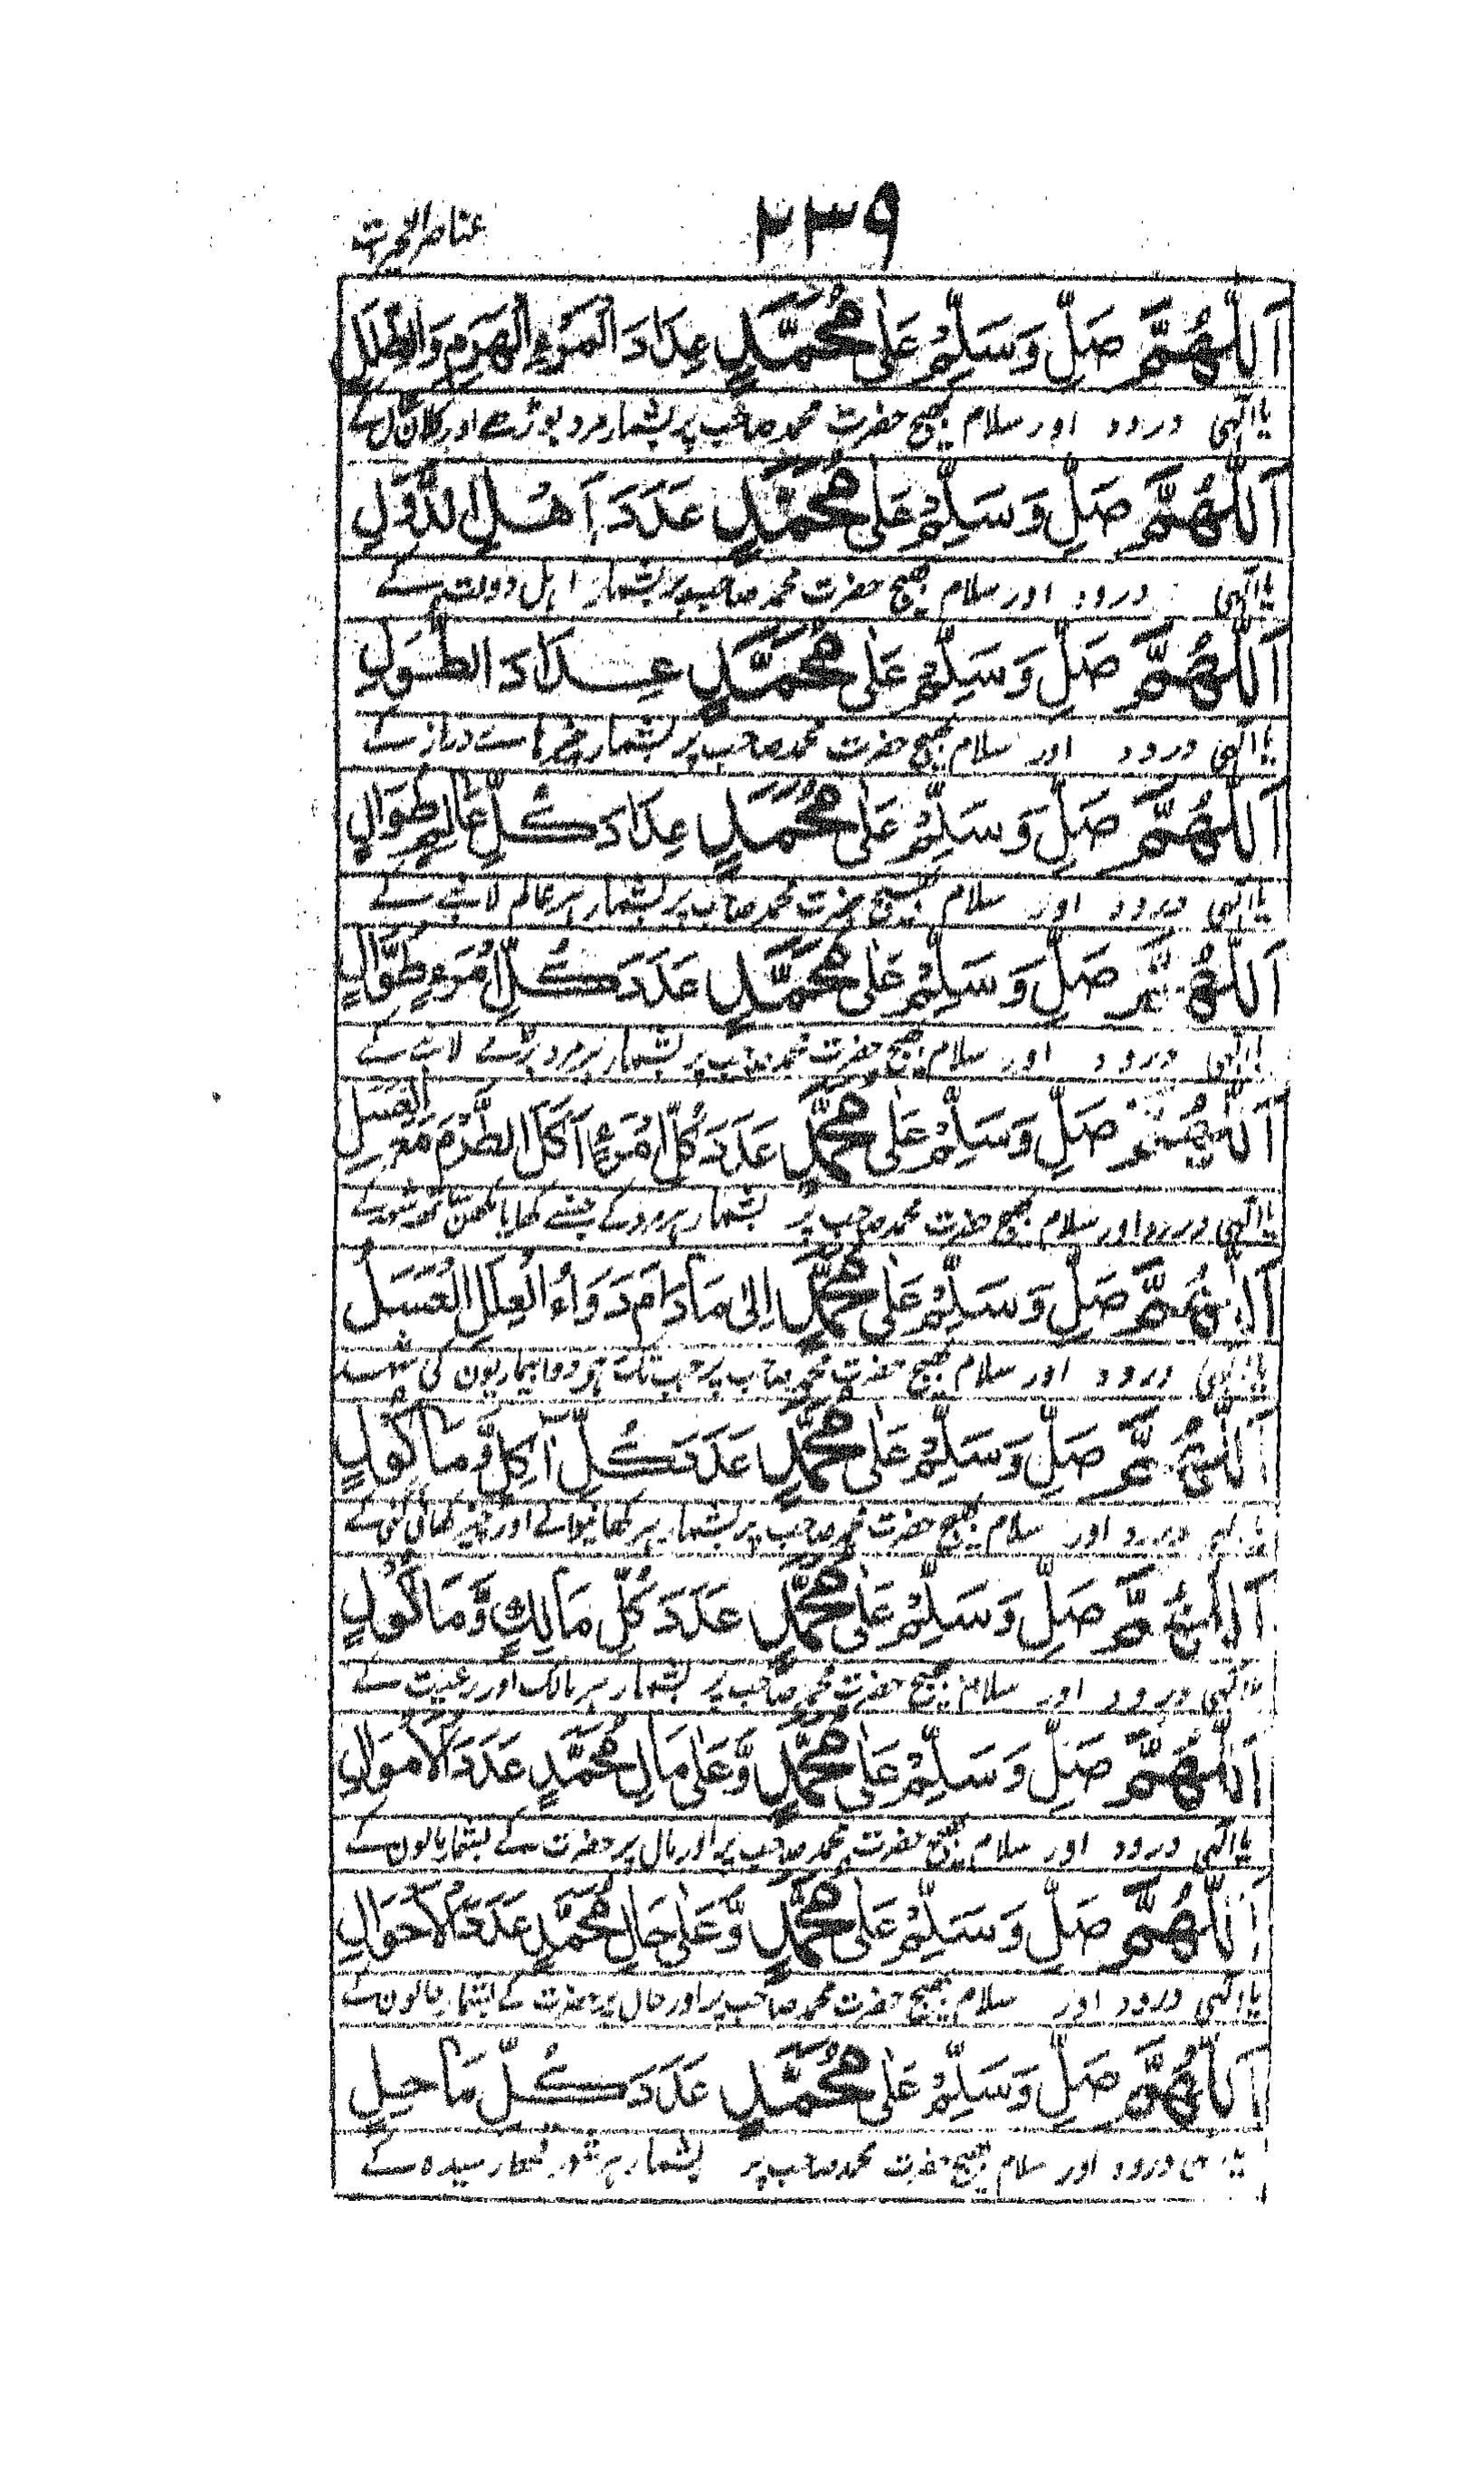 ۲۳۹
عناصر الخیرات
اَللّٰهُمَّ صَلِّ وَسَلِّمْ عَلٰى مُحَمَّدٍ عِدَادَ الْمَرْءِ الْهَرِمِ وَ
یا الٰہی درود اور سلام بھیج حضرت محمد صاحب پر بشمار مرد بوڑھے اور کے
اَللّٰهُمَّ صَلِّ وَسَلِّمْ عَلٰى مُحَمَّدٍ عَدَدَ اَهْلِ الدُّوَلِ
یا الٰہی درود اور سلام بھیج حضرت محمد صاحب پر بشمار اہل دولت کے
اَللّٰهُمَّ صَلِّ وَسَلِّمْ عَلٰى مُحَمَّدٍ عِدَادَ الطِّوَلِ
یا الٰہی درود اور سلام بھیج حضرت محمد صاحب پر بشمار دراز کے
اَللّٰهُمَّ صَلِّ وَسَلِّمْ عَلٰى مُحَمَّدٍ عِدَادَ كُلِّ عَالِمٍ طُوَالٍ
یا الٰہی درود اور سلام بھیج حضرت محمد صاحب پر بشمار ہر عالم لانبے کے
اَللّٰهُمَّ صَلِّ وَسَلِّمْ عَلٰى مُحَمَّدٍ عَدَدَ كُلِّ امْرَءٍ طُوَّالٍ
یا الٰہی درود اور سلام بھیج حضرت محمد صاحب پر بشمار ہر مرد بڑے لانبے کے
اَللّٰهُمَّ صَلِّ وَسَلِّمْ عَلٰى مُحَمَّدٍ عَدَدَ كُلِّ امْرَءٍ اَكَلَ الطَّرْمَ مَعَ الْعَسَلِ
یا الٰہی درود اور سلام بھیج حضرت محمد صاحب پر بشمار ہر مرد کے جسنے کھایا مکھن ساتھ شہد کے
اَللّٰهُمَّ صَلِّ وَسَلِّمْ عَلٰى مُحَمَّدٍ اِلٰى مَا دَامَ دَوَاءُ الْعِلَلِ الْعَسَلُ
یا الٰہی درود اور سلام بھیج حضرت محمد صاحب پر جب تک ہو دوا بیماریون کی شہد
اَللّٰهُمَّ صَلِّ وَسَلِّمْ عَلٰى مُحَمَّدٍ عَدَدَ كُلِّ اٰكِلٍ وَّمَاْكُوْلٍ
یا الٰہی درود اور سلام بھیج حضرت محمد صاحب پر بشمار ہر کھانیوالے اور چیز کھائی گئی کے
اَللّٰهُمَّ صَلِّ وَسَلِّمْ عَلٰى مُحَمَّدٍ عَدَدَ كُلِّ مَالِكٍ وَّمَاكُوْلٍ
یا الٰہی درود اور سلام بھیج حضرت محمد صاحب پر بشمار ہر مالک اور رعیت کے
اَللّٰهُمَّ صَلِّ وَسَلِّمْ عَلٰى مُحَمَّدٍ وَّعَلٰى مَالِ مُحَمَّدٍ عَدَدَ الْاَمْوَالِ
یا الٰہی درود اور سلام بھیج حضرت محمد صاحب پر اور مال پر حضرت کے بشمار مالون کے
اَللّٰهُمَّ صَلِّ وَسَلِّمْ عَلٰى مُحَمَّدٍ وَّعَلٰى حَالِ مُحَمَّدٍ عَدَدَ الْاَحْوَالِ
یا الٰہی درود اور سلام بھیج حضرت محمد صاحب پر اور حال پر حضرت کے بشمار حالون کے
اَللّٰهُمَّ صَلِّ وَسَلِّمْ عَلٰى مُحَمَّدٍ عَدَدَ كُلِّ مَاحِلٍ
یا الٰہی درود اور سلام بھیج حضرت محمد صاحب پر بشمار ہر قحط رسیدہ کے